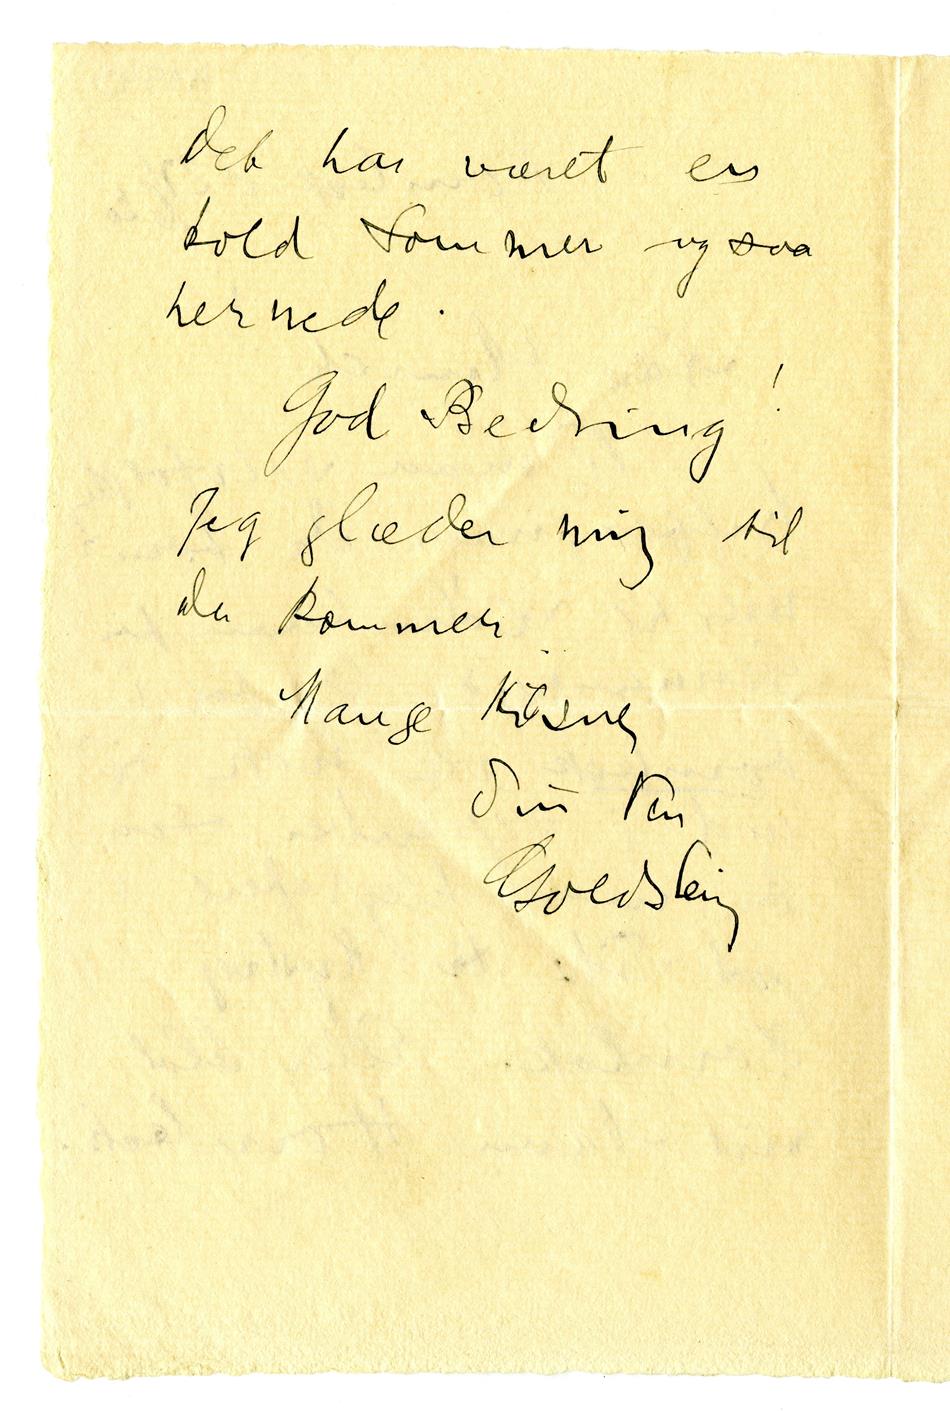 Det har været en
kold Sommer ogsaa
hernede.
God Bedring!
Jeg glæder mig til
du kommer
Mange Kÿsse
Din Ven